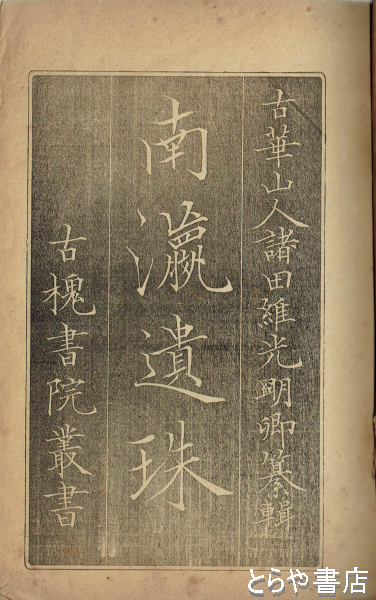 古華山人諸田維光明卿纂輯
南瀛遺珠
古槐書院叢書
とらや書店